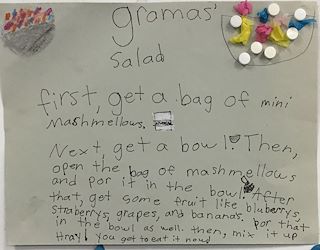 gramas'
Salad
first, get a bag of mini
mashmellows.
Next, get a bowl. Then,
open the bag of mashmellows
and por it in the bowl. After
that, get some fruit like bluberys,
straberys, grapes, and bananas. Por that
in the bowl as well. then, mix it up
Hray! you got to eat it now!